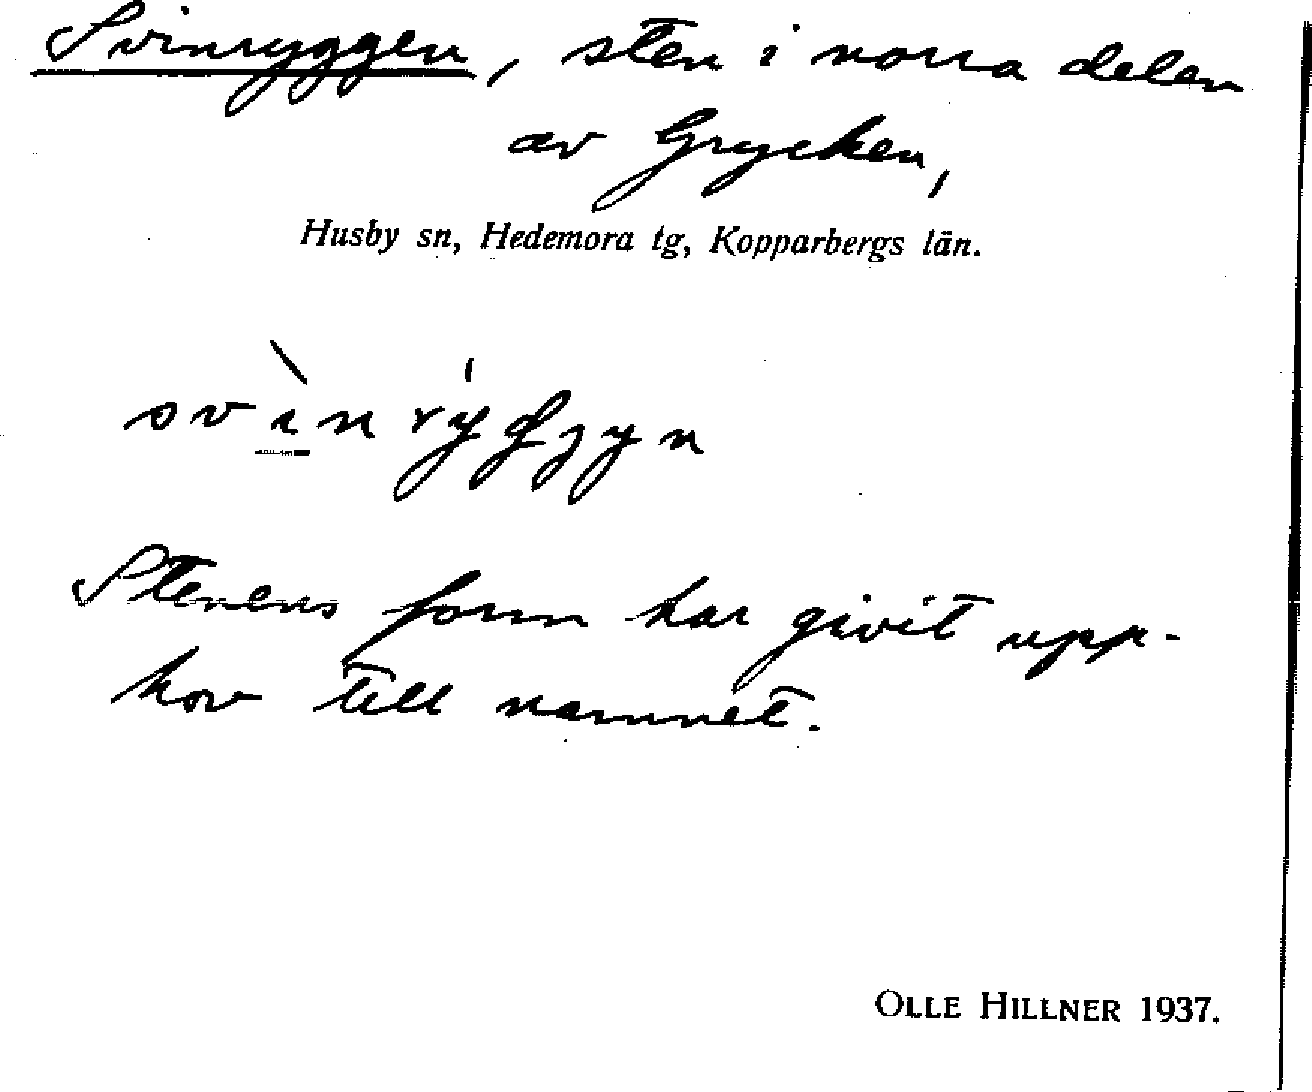 Svinryggen, sten i norra delen
av Grycken,
Husby sn, Hedemora tg, Kopparbergs län.
Stenens form har givit upp-
hov till namnet.
OLLE HILLNER 1937.